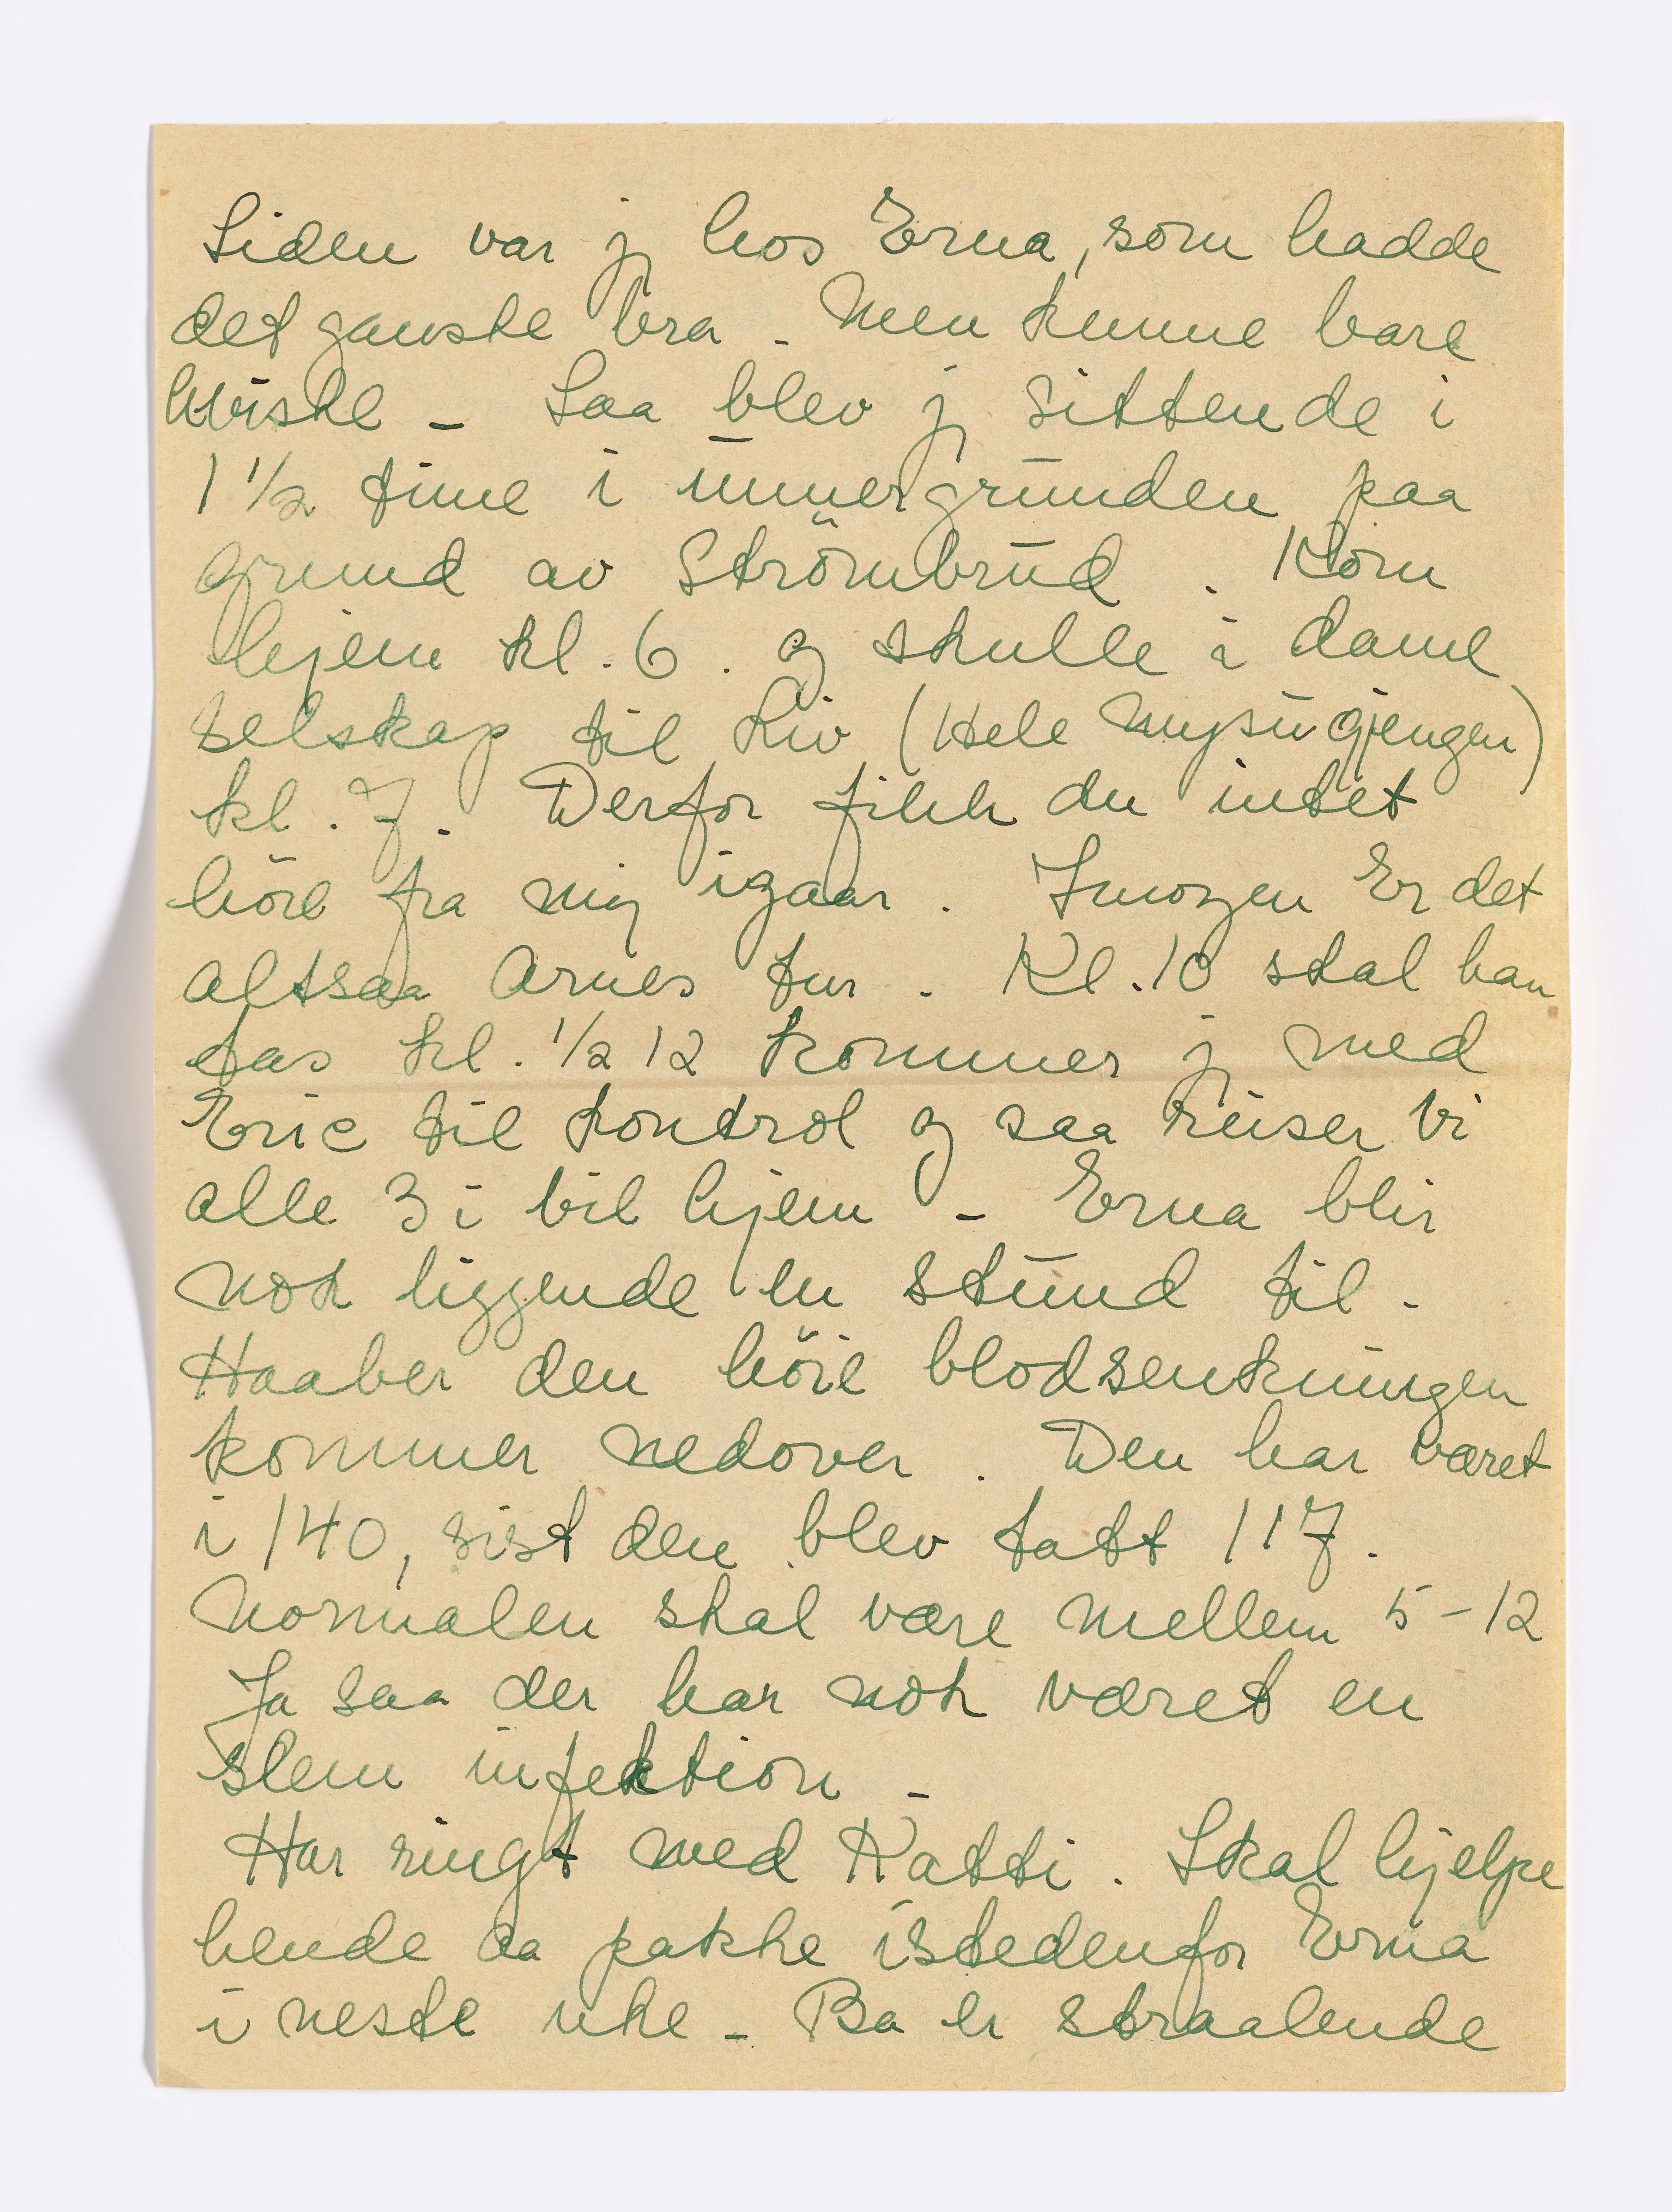 Siden var j hos Erna, som hadde
det ganske bra. Men kunne bare
hviske - Saa blev j sittende i
1 1/2 time i ünnergrunden paa
grund av Strömbrud. Kom
hjem kl. 6. og skulle i dame
selskap til Liv (Hele Mysügjengen)
kl. 7. Derfor fikk du intet
höre fra mig igaar. Imorgen Er det
altsaa Arnes tur. Kl. 10 skal han
tas kl. 1/2 12 kommer j med
Eric til kontrol og saa reiser vi
alle 3 i bil hjem - Erna blir
nok liggende en stund til.
Haaber den höie blodsenkningen
kommer nedover. Den har været
i 140, sist den blev tatt 117.
Normalen skal være mellem 5-12
Ja saa der har nok været en
slem infektion -
Har ringt med Katti. Skal hjelpe
hende aa pakke istedenfor Erna
i neste uke - Ba er straalende